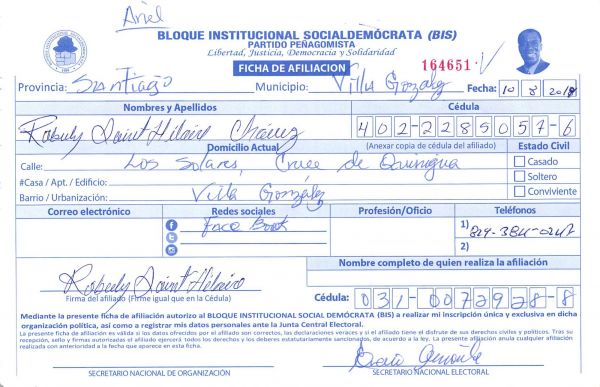 Ariel
BLOQUE INSTITUCIONAL SOCIALDEMÓCRATA (BIS)
PARTIDO PEÑAGOMISTA
Libertad, Justicia, Democracia y Solidaridad
FICHA DE AFILIACION
164651
Provincia: Santiago Municipio: Villa Gonzalez Fecha: 10 8 2018
Nombres y Apellidos Cédula
Robuly Saint Hilaire Chávez 402-2285057-6
Domicilio Actual (Anexar copia de cédula del afiliado) Estado Civil
Calle: Los Solares, Cruce de Quinigua Casado
#Casa / Apt. / Edificio: Soltero
Barrio / Urbanización: Villa González Conviviente
Correo electrónico Redes sociales Profesión/Oficio Teléfonos
Face Book 1) 829-384-0247
2)
Nombre completo de quien realiza la afiliación
Robuly Saint Hilaire
Firma del afiliado (Firme igual que en la Cédula) Cédula: 031-0072928-8
Mediante la presente ficha de afiliación autorizo al BLOQUE INSTITUCIONAL SOCIAL DEMÓCRATA (BIS) a realizar mi inscripción única y exclusiva en dicha
organización política, así como a registrar mis datos personales ante la Junta Central Electoral.
La presente ficha de afiliación es válida si los datos ofrecidos por el afiliado son correctos, las declaraciones veraces y si el afiliado tiene el disfrute de sus derechos civiles y políticos. Tras su
recepción, sello y firmas autorizadas el afiliado ejercerá todos los derechos y los deberes estatutariamente sancionados, de acuerdo a la ley. La presente afiliación anula cualquier afiliación
realizada con anterioridad a la fecha que aparece en esta ficha.
SECRETARIO NACIONAL DE ORGANIZACIÓN SECRETARIO NACIONAL ELECTORAL